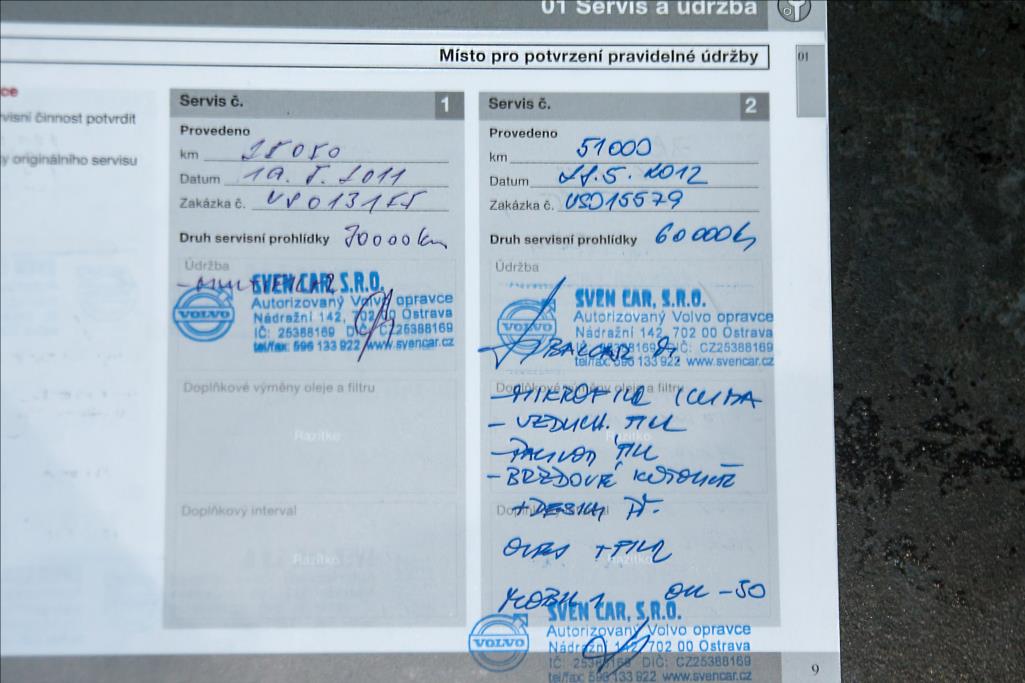 01 Servis a údržba
Místo pro potvrzení pravidelné údržby
01
ce
visní činnost potvrdit
y originálního servisu
Servis č. 1
Provedeno
km
Datum 2011
Zakázka č.
Druh servisní prohlídky 30000 km
Údržba
SVEN CAR, S.R.O.
Autorizovaný Volvo opravce
Nádražní 142, 702 00 Ostrava
IČ: 25388169 DIČ: CZ25388169
tel/fax: 596 133 922 www.svencar.cz
VOLVO
Doplňkové výměny oleje a filtru
Razítko
Doplňkový interval
Razítko
Servis č. 2
Provedeno
km 51000
Datum 5. 2012
Zakázka č. USO15579
Druh servisní prohlídky 60000 km
Údržba
SVEN CAR, S.R.O.
Autorizovaný Volvo opravce
Nádražní 142, 702 00 Ostrava
IČ: 25388169 DIČ: CZ25388169
tel/fax: 596 133 922 www.svencar.cz
VOLVO
Doplňkové výměny oleje a filtru
- VZDUCH.
Razítko
- BRZDOVÉ
+ DESKY
MOBIL 1 0W-30
SVEN CAR, S.R.O.
Autorizovaný Volvo opravce
Nádražní 142, 702 00 Ostrava
IČ: 25388169 DIČ: CZ25388169
tel/fax: 596 133 922 www.svencar.cz
VOLVO
9